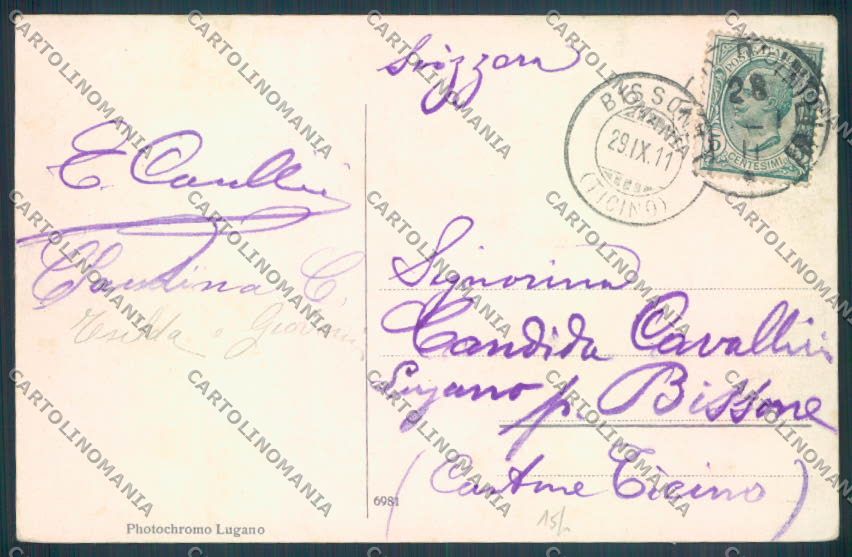 Svizzera
BISSONE
29.IX.11
(TICINO)
28
11
POSTE
CENTESIMI
E. Cavallini
Claudina C.
Giovanni
Signorina
Candida Cavallini
Lugano p. Bissone
(Cantone Ticino)
6981
Photochromo Lugano
15/-
CARTOLINOMANIA